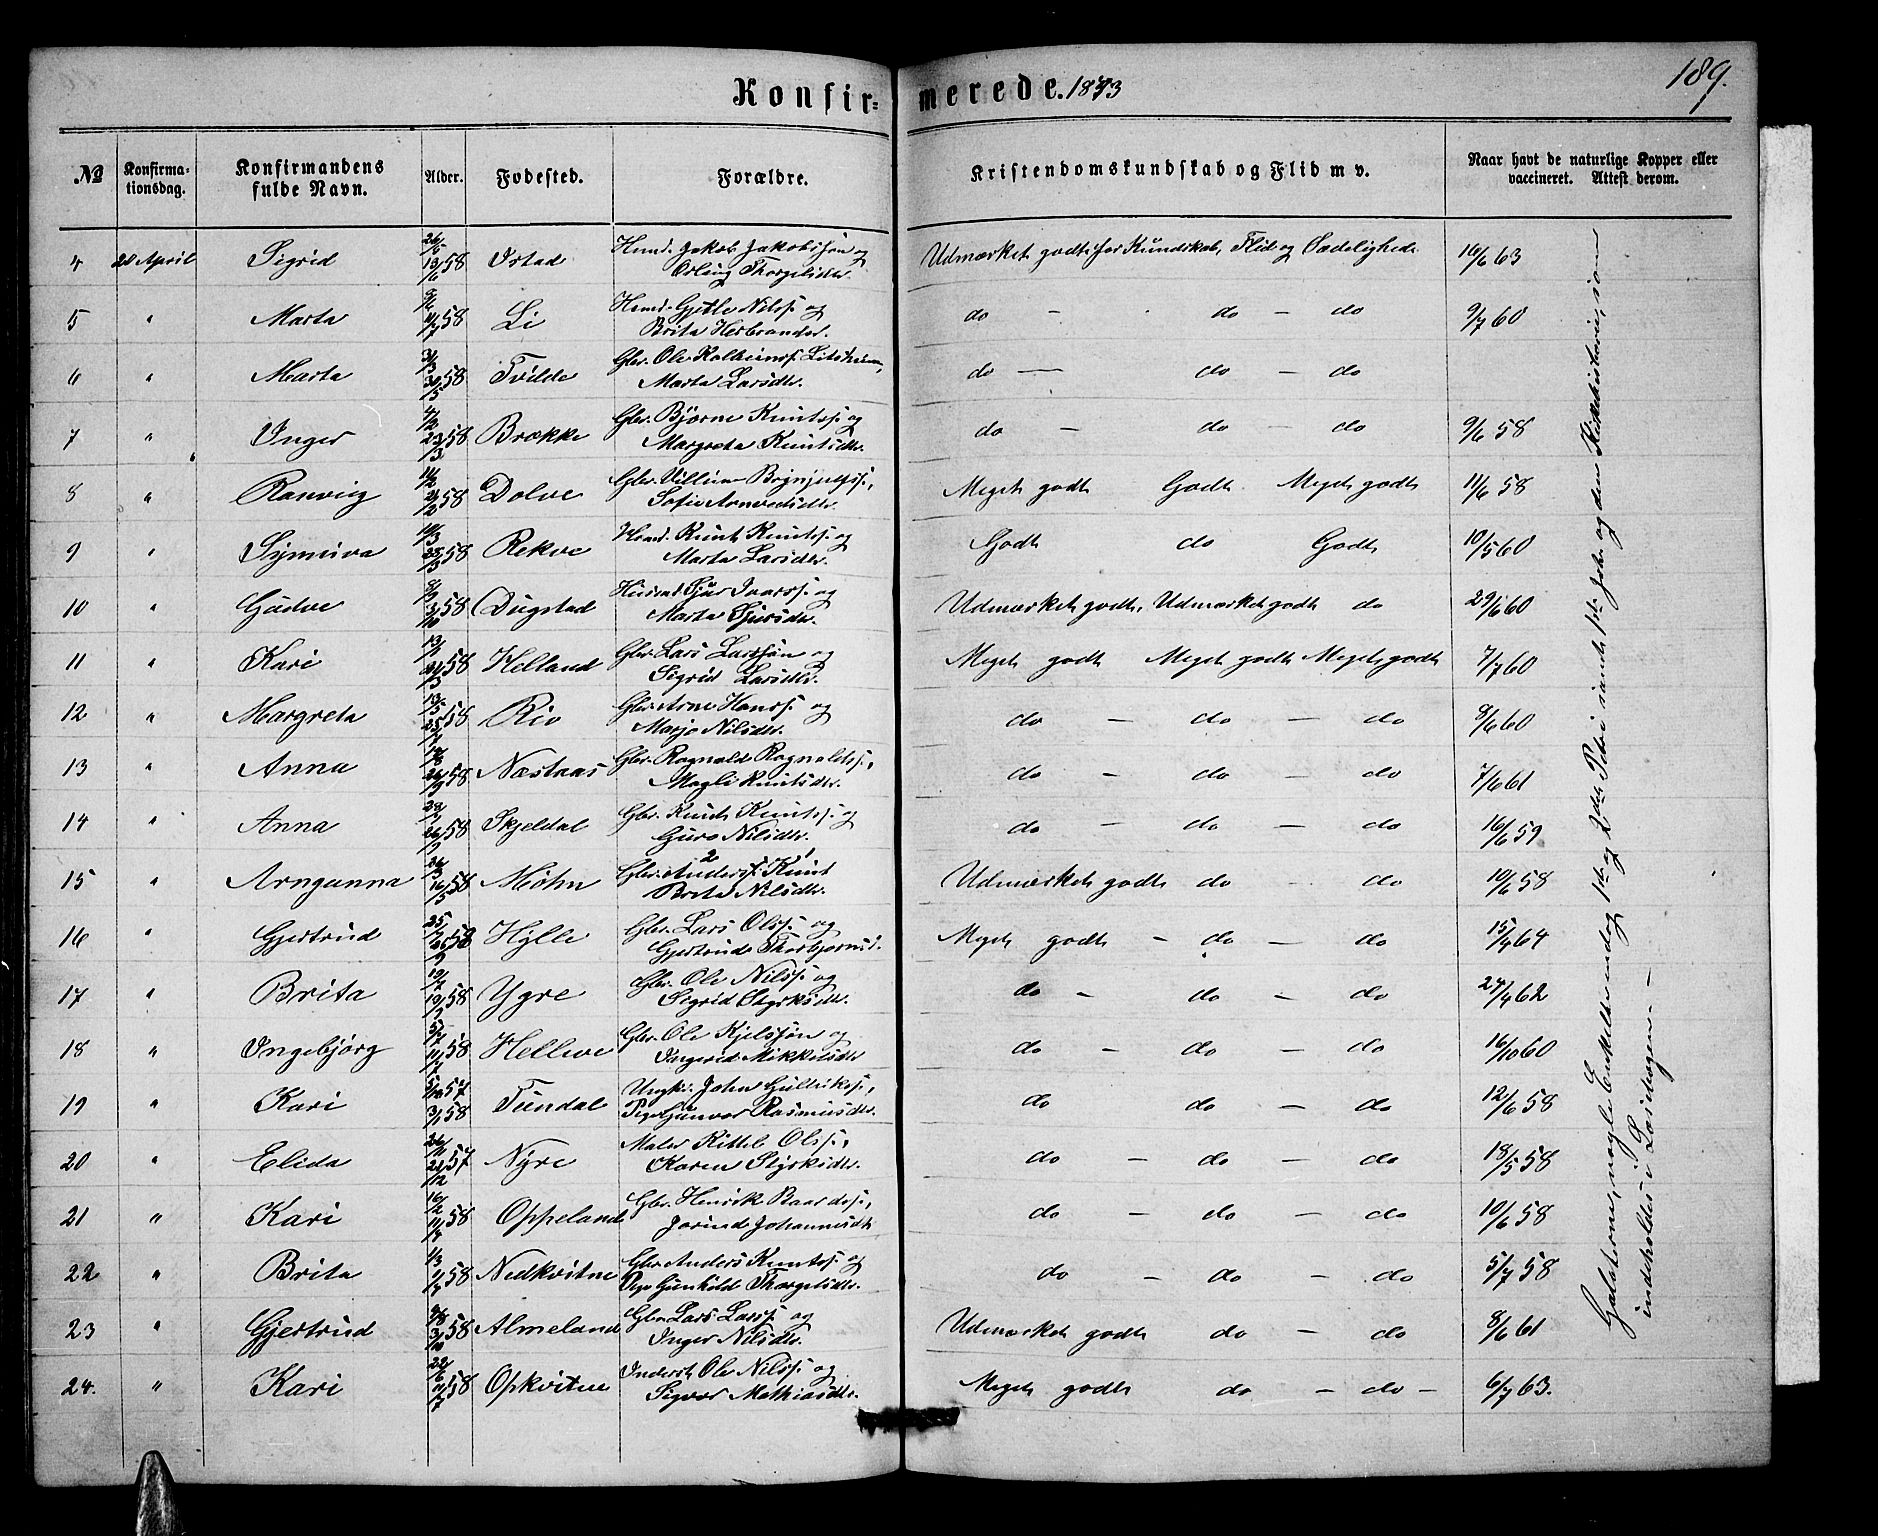 Konfir= merede. 1873
189.
№ Konfirma-tionsdag. Konfirmandens fulde Navn. Alder. Fødested. Forældre. Kristendomskundskab og Flid m v. Naar havt de naturlige Kopper eller vaccineret. Attest derom.
4 20 April Sigrid 13/6 58 Istad Husmd. Jakob Jakobssøn og Udmærket godt for Kundskab, Flid og Sædelighed 10/6 63
5 " Marta 58 Li Husmd. Gjetle Nilss. og Brita Herbrandsdr. do - do - do 9/7 60
6 " Marta 58 Tvilde Gbr. Ole Kolbeinss. Marta Larsdtr. do - do - do
7 " Inger 4/2 23/3 58 Brække Gbr. Bjørne Knutss. og Margreta Knutsdtr. do - do - do 9/6 58
8 " Ranvig 58 Dolve Gbr. Villum Brynjulfss., Sofie Arnvedsdtr. Meget godt Godt Meget godt 11/6 58
9 " Synneva 58 Rekve Husmd. Knut Knutss. og Marta Larsdtr. Godt do Godt 10/5 60
10 " Gudve 58 Dugstad Husmd Sjur Ivarss. og Marta Sjursdtr. Udmærket godt, Udmærket godt do 29/6 60
11 " Kari 58 Helland Gbr. Lars Larssøn og Sigrid Larsdtr. Meget godt Meget godt Meget godt 7/7 60
12 " Margreta 58 Rio Gbr. Arne Hanss. og Marjo Nilsdtr. do - do - do 8/6 60
13 " Anna 58 Næstaas Gbr. Ragnald Ragnaldss., Magli Knutsdtr. do - do - do 7/6 61
14 " Anna 58 Skjeldal Gbr. Knut Knutss. og Guro Nilsdtr. do - do - do 16/6 59
15 " Arnganna 16/5 58 Møhn Gbr. Anderss. 2 Knut 1 Brita Nilsdtr. Udmærket godt do - do 10/6 58
16 " Gjertrud 58 Hylle Gbr. Lars Olss. og Gjertrud Thorbjørnsd. Meget godt - do - do 15/9 64
17 " Brita 58 Ygre Gbr. Ole Nilss. og Sigrid Styrksdtr. do - do - do 27/9 62
18 " Ingebjørg 58 Helleve Gbr. Ole Kjelssøn og Ingerid Mikkelsdtr do - do - do 16/10 60
19 " Kari 57 3/1 58 Tundal Ungk. John Gulleikss., Pige Gunvor Rasmusdtr. do do - do 12/6 58
20 " Elida 26/11 57 Nyre Maler Kittel Olss., Karen Styrksdtr. do - do - do 18/5 58
21 " Kari 16/2 58 Oppeland Gbr. Henrik Baardss., Jorind Johannesdtr do - do - do 10/6 58
22 " Brita 1/3 58 Nedkvitne Gbr. Anders Knutss. og Pige Gunhild Thorgelsdtr. do - do - do 5/7 58
23 " Gjertrud 58 Almeland Gbr. Lars Larss. og Inger Nilsdtr. Udmærket godt do - do 8/6 61
24. " Kari 58 Opkvitne Inderst Ole Nilss. og Sigvor Mathiasdtr. Meget godt do - do - 6/7 63.
Galaterne, nogle Enkelte endog 1ste og 2det Petri samt 1ste Joh. og den Kirkehistorie, som
indeholdes i Læsebogen. -